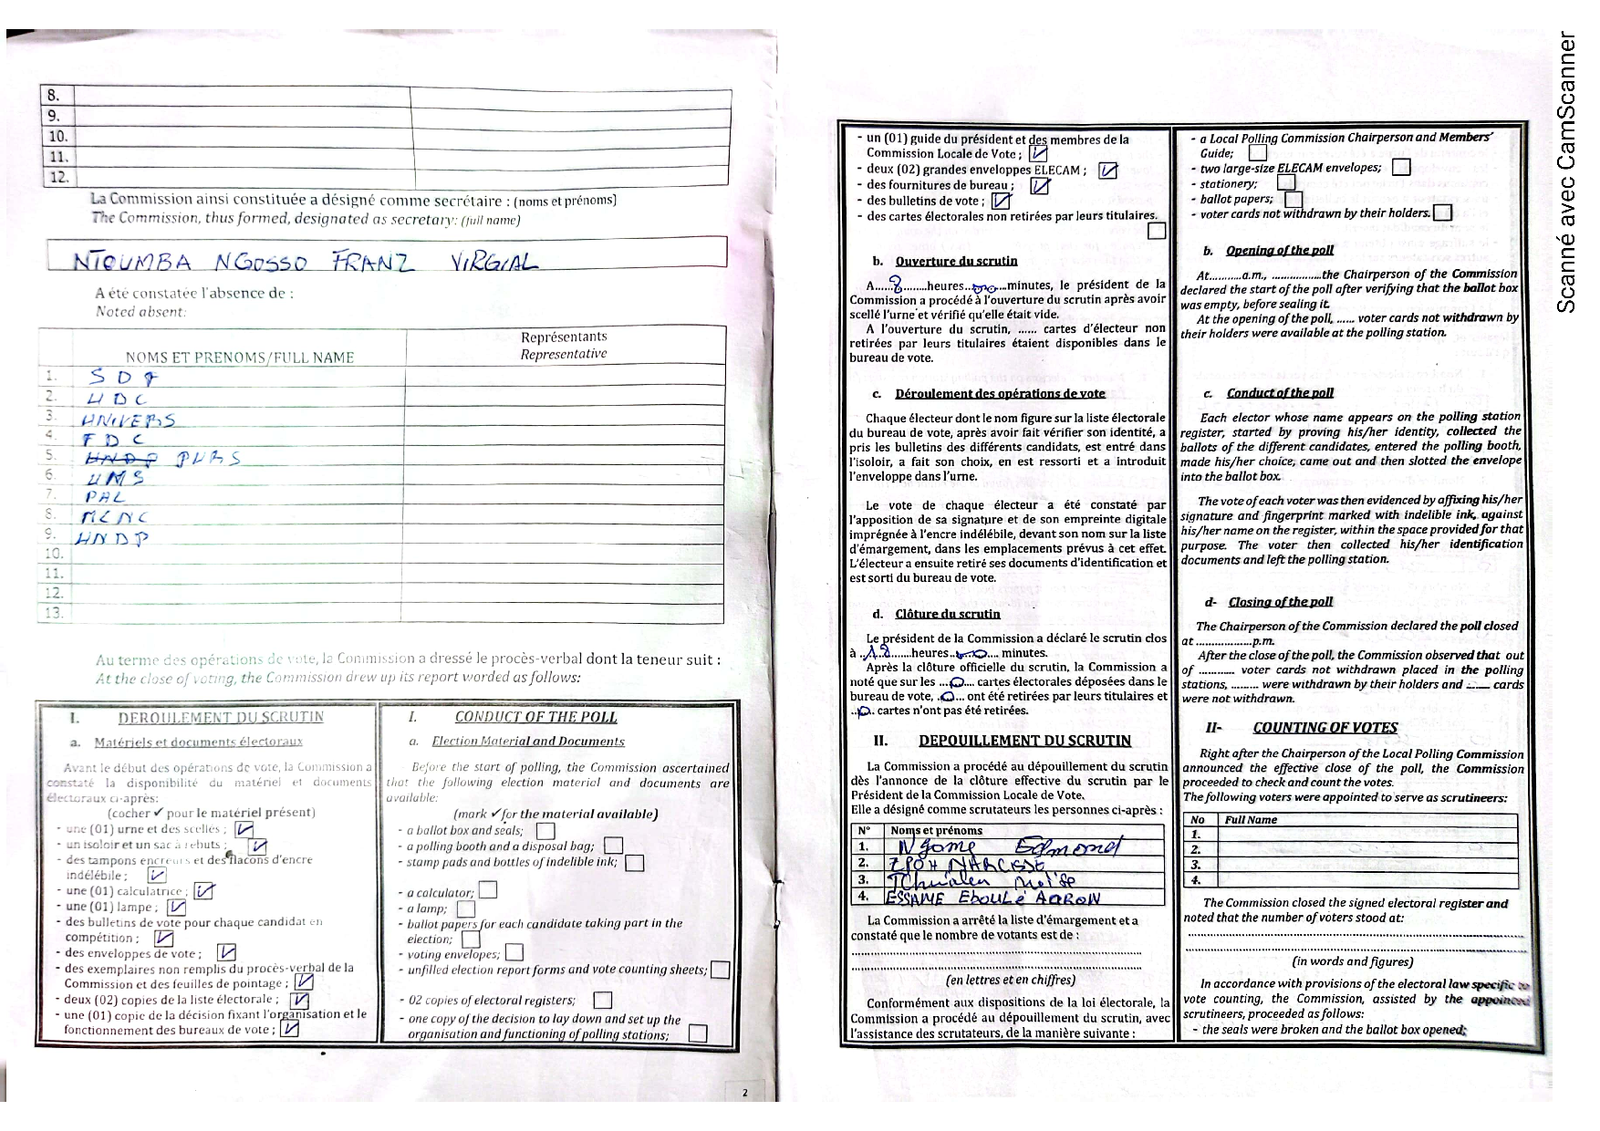 8.
9.
10.
11.
12.
La Commission ainsi constituée a désigné comme secrétaire : (noms et prénoms)
The Commission, thus formed, designated as secretary: (full name)
NTOUMBA NGOSSO FRANZ VIRGIAL
A été constatée l'absence de :
Noted absent:
NOMS ET PRENOMS/FULL NAME
Représentants
Representative
1. SDF
2. UDC
3. UNIVERS
4. FDC
5. UNDP PURS
6. UMS
7. PAL
8. MCNC
9. UNDP
10.
11.
12.
13.
Au terme des opérations de vote, la Commission a dressé le procès-verbal dont la teneur suit :
At the close of voting, the Commission drew up its report worded as follows:
I. DEROULEMENT DU SCRUTIN
a. Matériels et documents électoraux
Avant le début des opérations de vote, la Commission a
constaté la disponibilité du matériel et documents
électoraux ci-après:
(cocher ✓ pour le matériel présent)
- une (01) urne et des scellés ;
- un isoloir et un sac à rebuts ;
- des tampons encreurs et des flacons d'encre
indélébile ;
- une (01) calculatrice ;
- une (01) lampe ;
- des bulletins de vote pour chaque candidat en
compétition ;
- des enveloppes de vote ;
- des exemplaires non remplis du procès-verbal de la
Commission et des feuilles de pointage ;
- deux (02) copies de la liste électorale ;
- une (01) copie de la décision fixant l'organisation et le
fonctionnement des bureaux de vote ;
I. CONDUCT OF THE POLL
a. Election Material and Documents
Before the start of polling, the Commission ascertained
that the following election material and documents are
available:
(mark ✓ for the material available)
- a ballot box and seals;
- a polling booth and a disposal bag;
- stamp pads and bottles of indelible ink;
- a calculator;
- a lamp;
- ballot papers for each candidate taking part in the
election;
- voting envelopes;
- unfilled election report forms and vote counting sheets;
- 02 copies of electoral registers;
- one copy of the decision to lay down and set up the
organisation and functioning of polling stations;
2
- un (01) guide du président et des membres de la
Commission Locale de Vote ;
- deux (02) grandes enveloppes ELECAM ;
- des fournitures de bureau ;
- des bulletins de vote ;
- des cartes électorales non retirées par leurs titulaires.
b. Ouverture du scrutin
A.....8.......heures..00..minutes, le président de la
Commission a procédé à l'ouverture du scrutin après avoir
scellé l'urne et vérifié qu'elle était vide.
A l'ouverture du scrutin, ...... cartes d'électeur non
retirées par leurs titulaires étaient disponibles dans le
bureau de vote.
c. Déroulement des opérations de vote
Chaque électeur dont le nom figure sur la liste électorale
du bureau de vote, après avoir fait vérifier son identité, a
pris les bulletins des différents candidats, est entré dans
l'isoloir, a fait son choix, en est ressorti et a introduit
l'enveloppe dans l'urne.
Le vote de chaque électeur a été constaté par
l'apposition de sa signature et de son empreinte digitale
imprégnée à l'encre indélébile, devant son nom sur la liste
d'émargement, dans les emplacements prévus à cet effet.
L'électeur a ensuite retiré ses documents d'identification et
est sorti du bureau de vote.
d. Clôture du scrutin
Le président de la Commission a déclaré le scrutin clos
à ..18.....heures..00... minutes.
Après la clôture officielle du scrutin, la Commission a
noté que sur les ...0... cartes électorales déposées dans le
bureau de vote, ..0... ont été retirées par leurs titulaires et
..0.. cartes n'ont pas été retirées.
II. DEPOUILLEMENT DU SCRUTIN
La Commission a procédé au dépouillement du scrutin
dès l'annonce de la clôture effective du scrutin par le
Président de la Commission Locale de Vote.
Elle a désigné comme scrutateurs les personnes ci-après :
N° Noms et prénoms
1. Ngome Edmond
2. NARCISSE
3. Tchuialeu Moïse
4. ESSAME EBOULé AARON
La Commission a arrêté la liste d'émargement et a
constaté que le nombre de votants est de :
(en lettres et en chiffres)
Conformément aux dispositions de la loi électorale, la
Commission a procédé au dépouillement du scrutin, avec
l'assistance des scrutateurs, de la manière suivante :
- a Local Polling Commission Chairperson and Members'
Guide;
- two large-size ELECAM envelopes;
- stationery;
- ballot papers;
- voter cards not withdrawn by their holders.
b. Opening of the poll
At..........a.m., ...............the Chairperson of the Commission
declared the start of the poll after verifying that the ballot box
was empty, before sealing it.
At the opening of the poll, ...... voter cards not withdrawn by
their holders were available at the polling station.
c. Conduct of the poll
Each elector whose name appears on the polling station
register, started by proving his/her identity, collected the
ballots of the different candidates, entered the polling booth,
made his/her choice, came out and then slotted the envelope
into the ballot box.
The vote of each voter was then evidenced by affixing his/her
signature and fingerprint marked with indelible ink, against
his/her name on the register, within the space provided for that
purpose. The voter then collected his/her identification
documents and left the polling station.
d- Closing of the poll
The Chairperson of the Commission declared the poll closed
at .................p.m.
After the close of the poll, the Commission observed that out
of ........... voter cards not withdrawn placed in the polling
stations, ......... were withdrawn by their holders and ....... cards
were not withdrawn.
II- COUNTING OF VOTES
Right after the Chairperson of the Local Polling Commission
announced the effective close of the poll, the Commission
proceeded to check and count the votes.
The following voters were appointed to serve as scrutineers:
No Full Name
1.
2.
3.
4.
The Commission closed the signed electoral register and
noted that the number of voters stood at:
(in words and figures)
In accordance with provisions of the electoral law specific to
vote counting, the Commission, assisted by the appointed
scrutineers, proceeded as follows:
- the seals were broken and the ballot box opened;
Scanné avec CamScanner